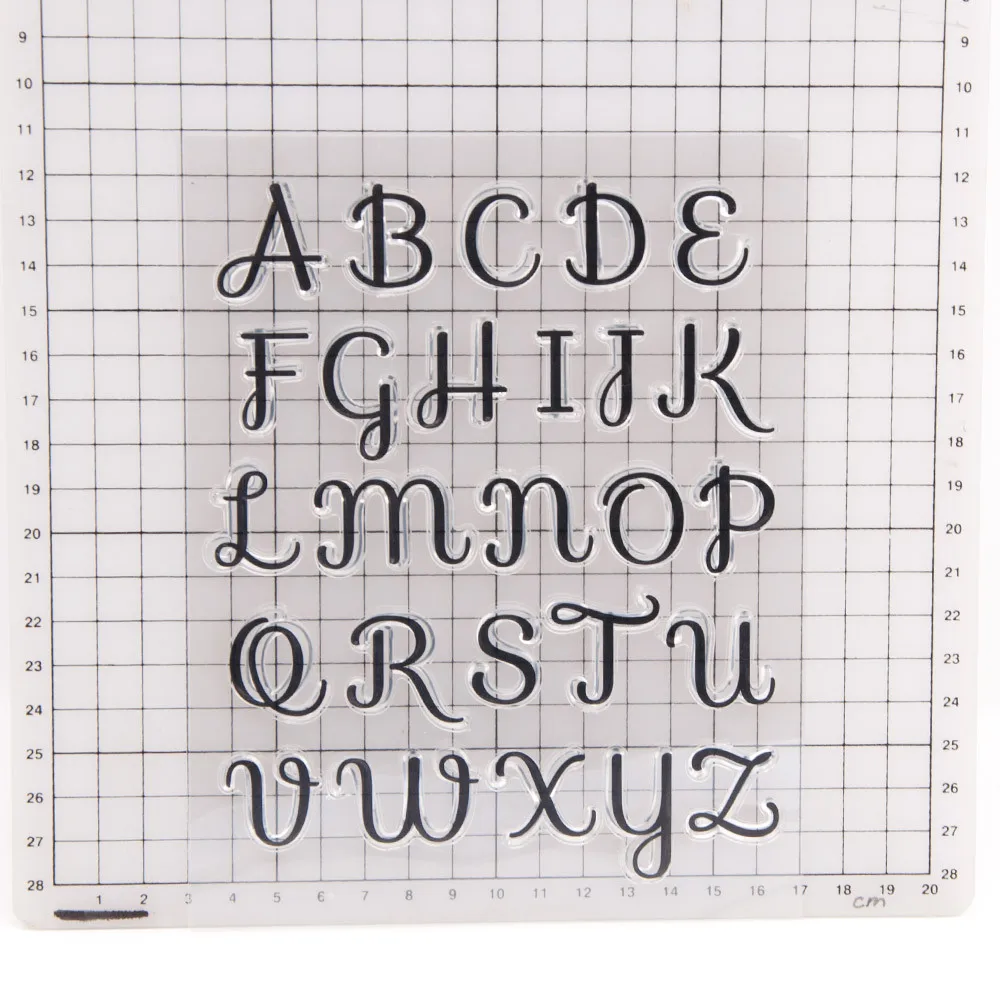 9 9
10 10
11 11
12 12
13 A B C D E 13
14 14
15 15
16 F G H I J K 16
17 17
18 18
19 L M N O P 19
20 20
21 21
22 22
23 Q R S T U 23
24 24
25 25
26 V W X Y Z 26
27 27
28 28
1 2 3 4 5 6 7 8 9 10 11 12 13 14 15 16 17 18 19 20
cm